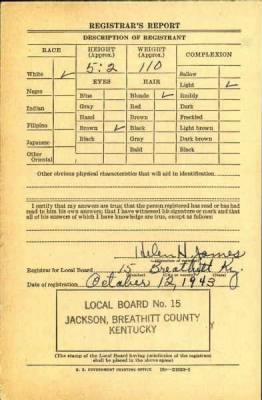 REGISTRAR'S REPORT
DESCRIPTION OF REGISTRANT
RACE HEIGHT (Approx.) WEIGHT (Approx.) COMPLEXION
5:2 110 Sallow
White ✓ EYES HAIR Light ✓
Negro Blue Blonde ✓ Ruddy
Indian Gray Red Dark
Hazel Brown Freckled
Filipino Brown ✓ Black Light brown
Japanese Black Gray Dark brown
Other Oriental Bald Black
Other obvious physical characteristics that will aid in identification
I certify that my answers are true; that the person registered has read or has had
read to him his own answers; that I have witnessed his signature or mark and that
all of his answers of which I have knowledge are true, except as follows:
Helen H. James
Registrar for Local Board 15 Breathitt Ky.
Date of registration October 12 1943
LOCAL BOARD No. 15
JACKSON, BREATHITT COUNTY
KENTUCKY
(The stamp of the Local Board having jurisdiction of the registrant
shall be placed in the above space)
U. S. GOVERNMENT PRINTING OFFICE